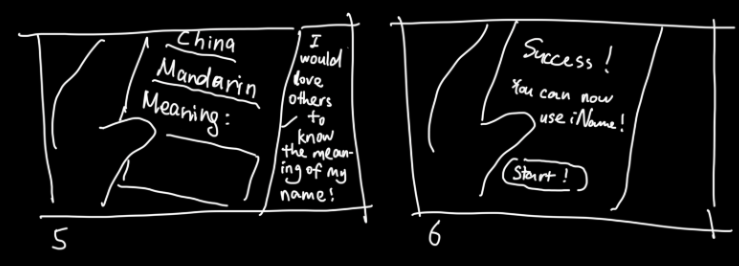 China
Mandarin
Meaning:
I
would
love
others
to
know
the mean-
ing of my
name!
5
Success!
You can now
use iName!
Start!
6